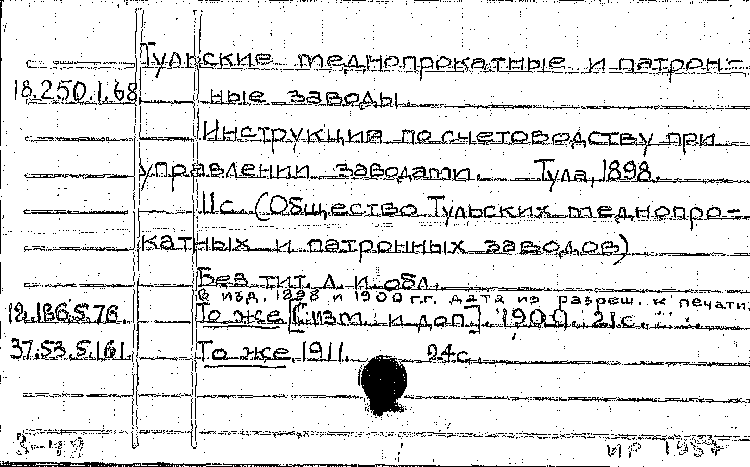 Тульские меднопрокатные и патрон-
18.250.1.68 ные заводы.
Инструкция по счетоводству при
управлении заводами. Тула, 1898.
11с. (Общество Тульских меднопро-
катных и патронных заводов)
Без тит. л. и обл.
В изд. 1898 и 1900 г.г. дата из разреш. к печати.
18.186.5.76. То же [С изм. и доп.]. 1900. 21с.
37.53.5.161. То же. 1911. 24с.
З-49 ИР 1957